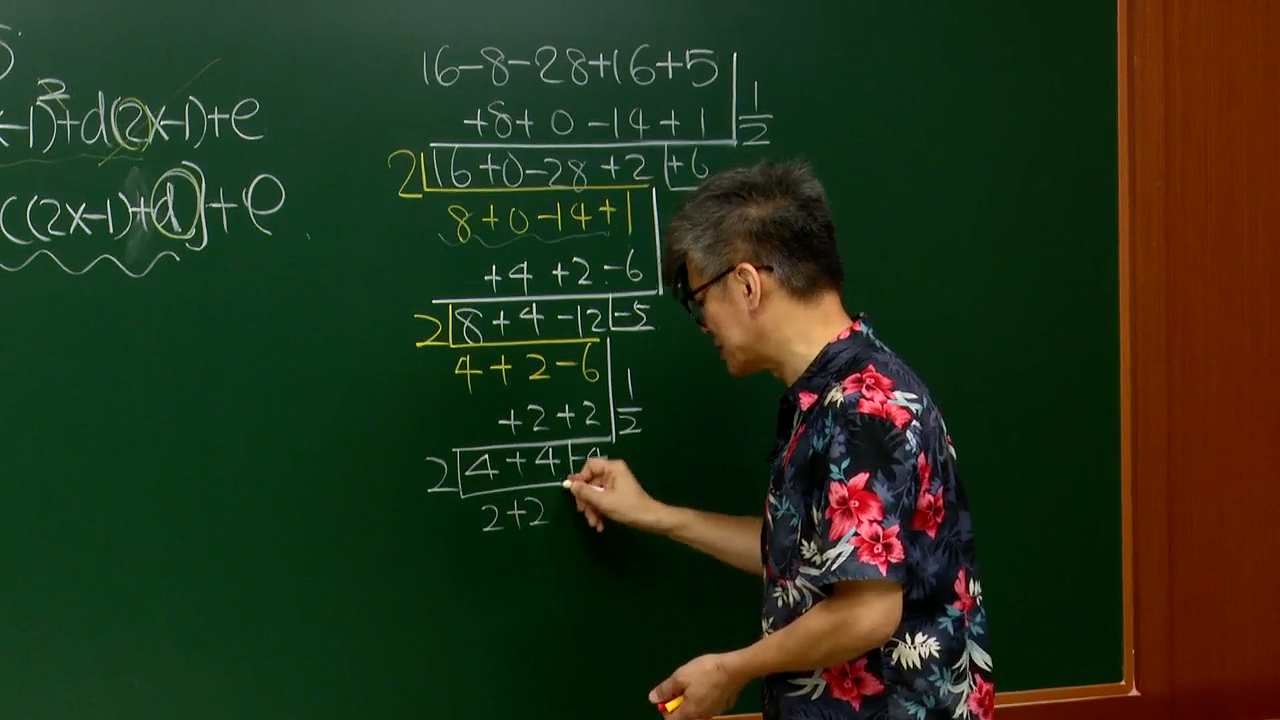 5
x-1)²+d(2x-1)+e
c(2x-1)+d]+e
16-8-28+16+5
+8+0-14+1 1/2
2 16+0-28+2 +6
8+0-14+1
+4+2-6
2 8+4-12 -5
4+2-6
+2+2 1/2
2 4+4 -4
2+2